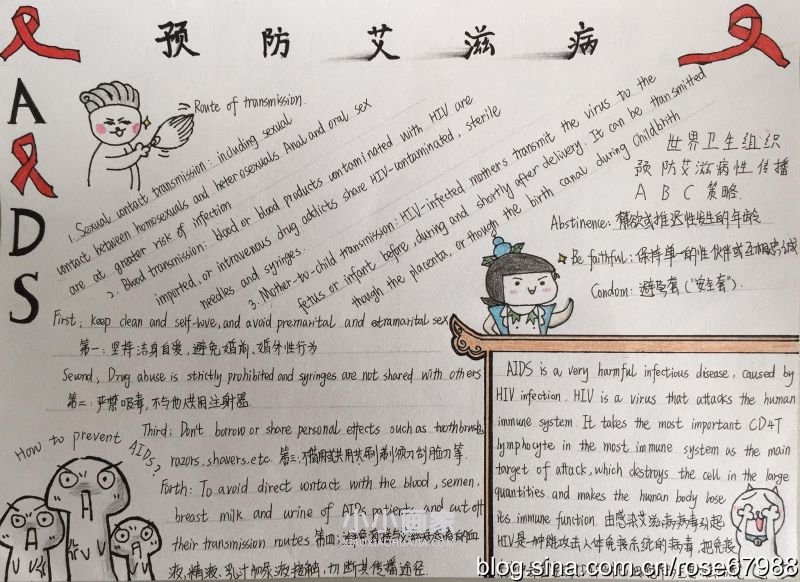 预防艾滋病
AIDS
Route of transmission.
1. Sexual contact transmission: including sexual
contact between homosexuals and heterosexuals. Anal and oral sex
are at greater risk of infection
2. Blood transmission: blood or blood products contaminated with HIV are
imported, or intravenous drug addicts share HIV-contaminated, sterile
needles and syringes.
3. Mother-to-child transmission: HIV-infected mothers transmit the virus to the
fetus or infant before, during and shortly after delivery. It can be transmitted
though the placenta, or though the birth canal during childbirth
世界卫生组织
预防艾滋病性传播
ABC策略.
Abstinence: 禁欲或推迟性发生的年龄
Be faithful: 保持单一的性伙伴或互相忠诚
Condom: 避孕套("安全套").
First, keep clean and self-love, and avoid premarital and extramarital sex
第一:坚持洁身自爱,避免婚前、婚外性行为
Second, Drug abuse is strictly prohibited and syringes are not shared with others
第二:严禁吸毒,不与他人共用注射器.
How to prevent AIDS?
Third: Don't borrow or share personal effects such as toothbrushes,
razors, shavers, etc. 第三:不借用或共用牙刷剃须刀刮脸刀等.
Forth: To avoid direct contact with the blood, semen,
breast milk and urine of AIDs patients and cut off
their transmission routes 第四:
液,精液、乳汁和尿液接触,切断其传播途径.
AIDS is a very harmful infectious disease, caused by
HIV infection. HIV is a virus that attacks the human
immune system. It takes the most important CD4T
lymphocyte in the most immune system as the main
target of attack, which destroys the cell in the large
quantities and makes the human body lose
its immune function. 由感染艾滋病病毒引起
HIV是一种能攻击人体免疫系统的病毒,把免疫
小小画家
blog.sina.com.cn/rose67988